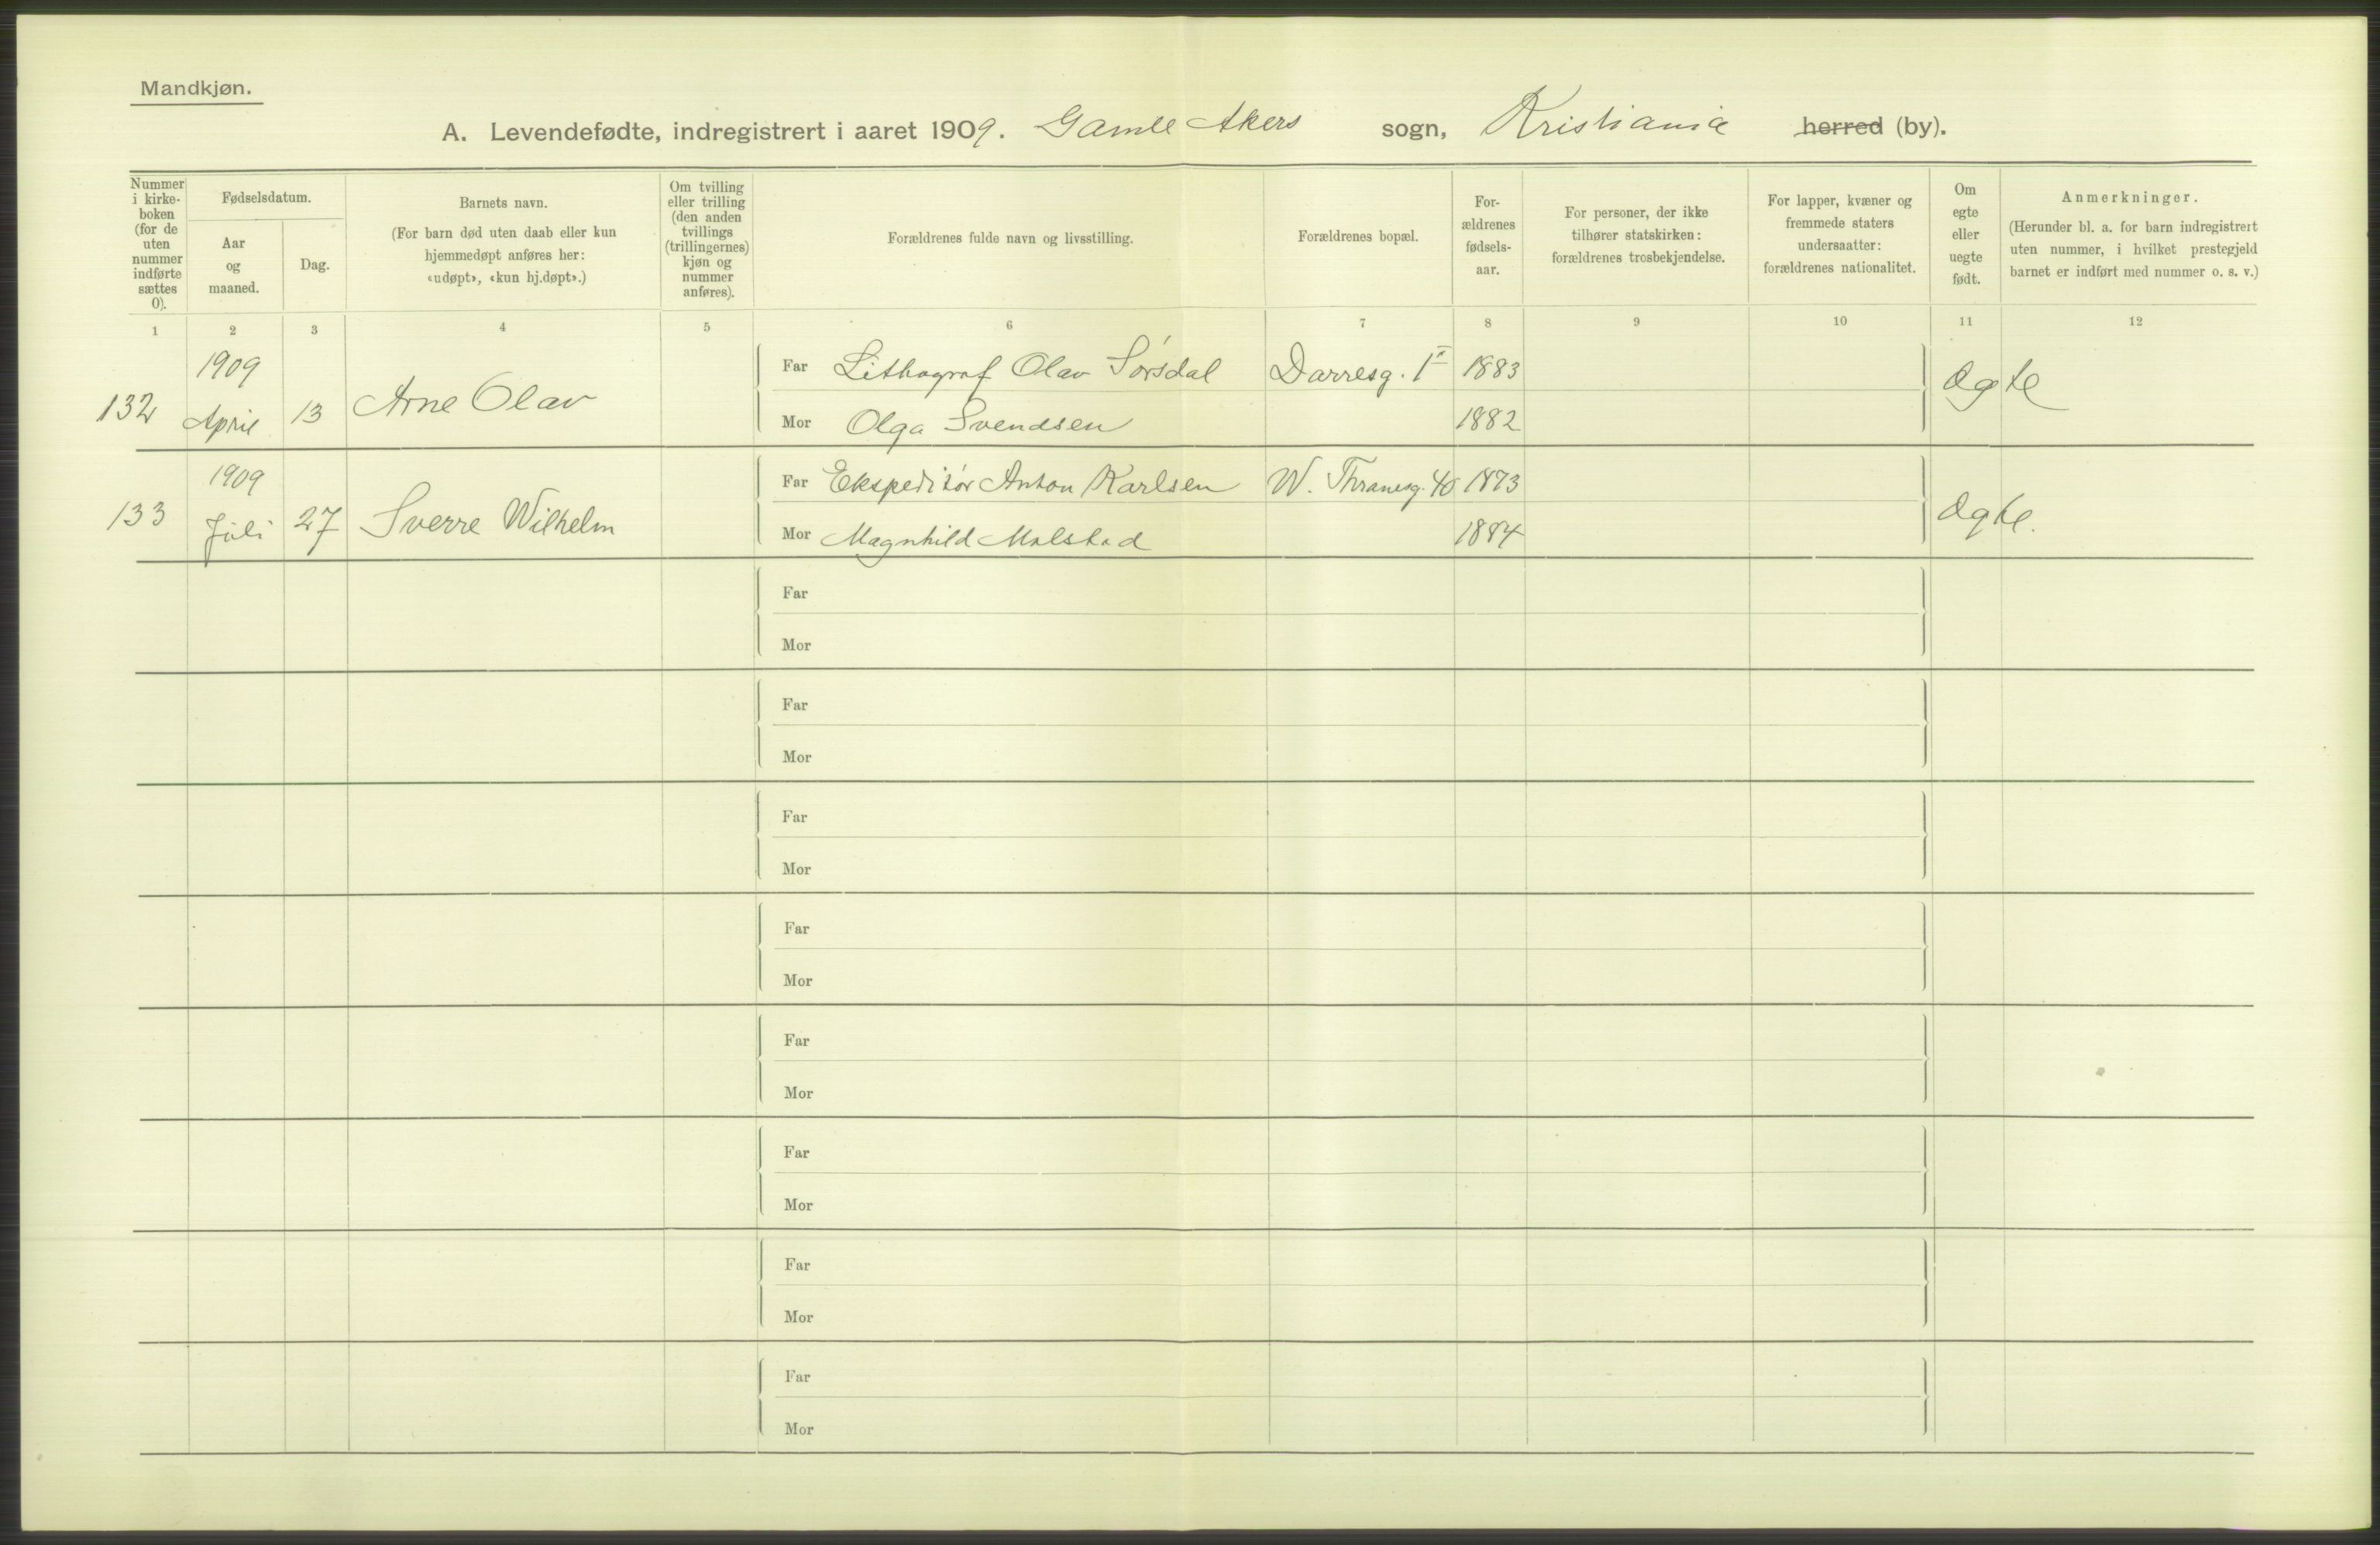 Mandkjøn.
A. Levendefødte, indregistrert i aaret 1909. Gamle Akers sogn, Kristiania herred (by).
Nummer i kirke- boken (for de uten nummer indførte sættes 0).
Fødselsdatum.
Aar og maaned.
Dag.
Barnets navn.
(For barn død uten daab eller kun hjemmedøpt anføres her: «udøpt», «kun hj.døpt».)
Om tvilling eller trilling (den anden tvillings (trillingernes) kjøn og nummer anføres).
Forældrenes fulde navn og livsstilling.
Forældrenes bopæl.
For- ældrenes fødsels- aar.
For personer, der ikke tilhører statskirken: forældrenes trosbekjendelse.
For lapper, kvæner og fremmede staters undersaatter: forældrenes nationalitet.
Om egte eller uegte født.
Anmerkninger.
(Herunder bl. a. for barn indregistrert uten nummer, i hvilket prestegjeld barnet er indført med nummer o. s. v.)
1 2 3 4 5 6 7 8 9 10 11 12
132 1909 April 13 Arne Olav Far Lithograf Olav Sørsdal Darresg. 1 II 1883 Ægte
Mor Olga Svendsen 1882
133 1909 Juli 27 Sverre Wilhelm Far Ekspeditør Anton Karlsen W. Thranesg. 40 1873 Ægte.
Mor Magnhild Malstad 1884
Far
Mor
Far
Mor
Far
Mor
Far
Mor
Far
Mor
Far
Mor
Far
Mor
Far
Mor